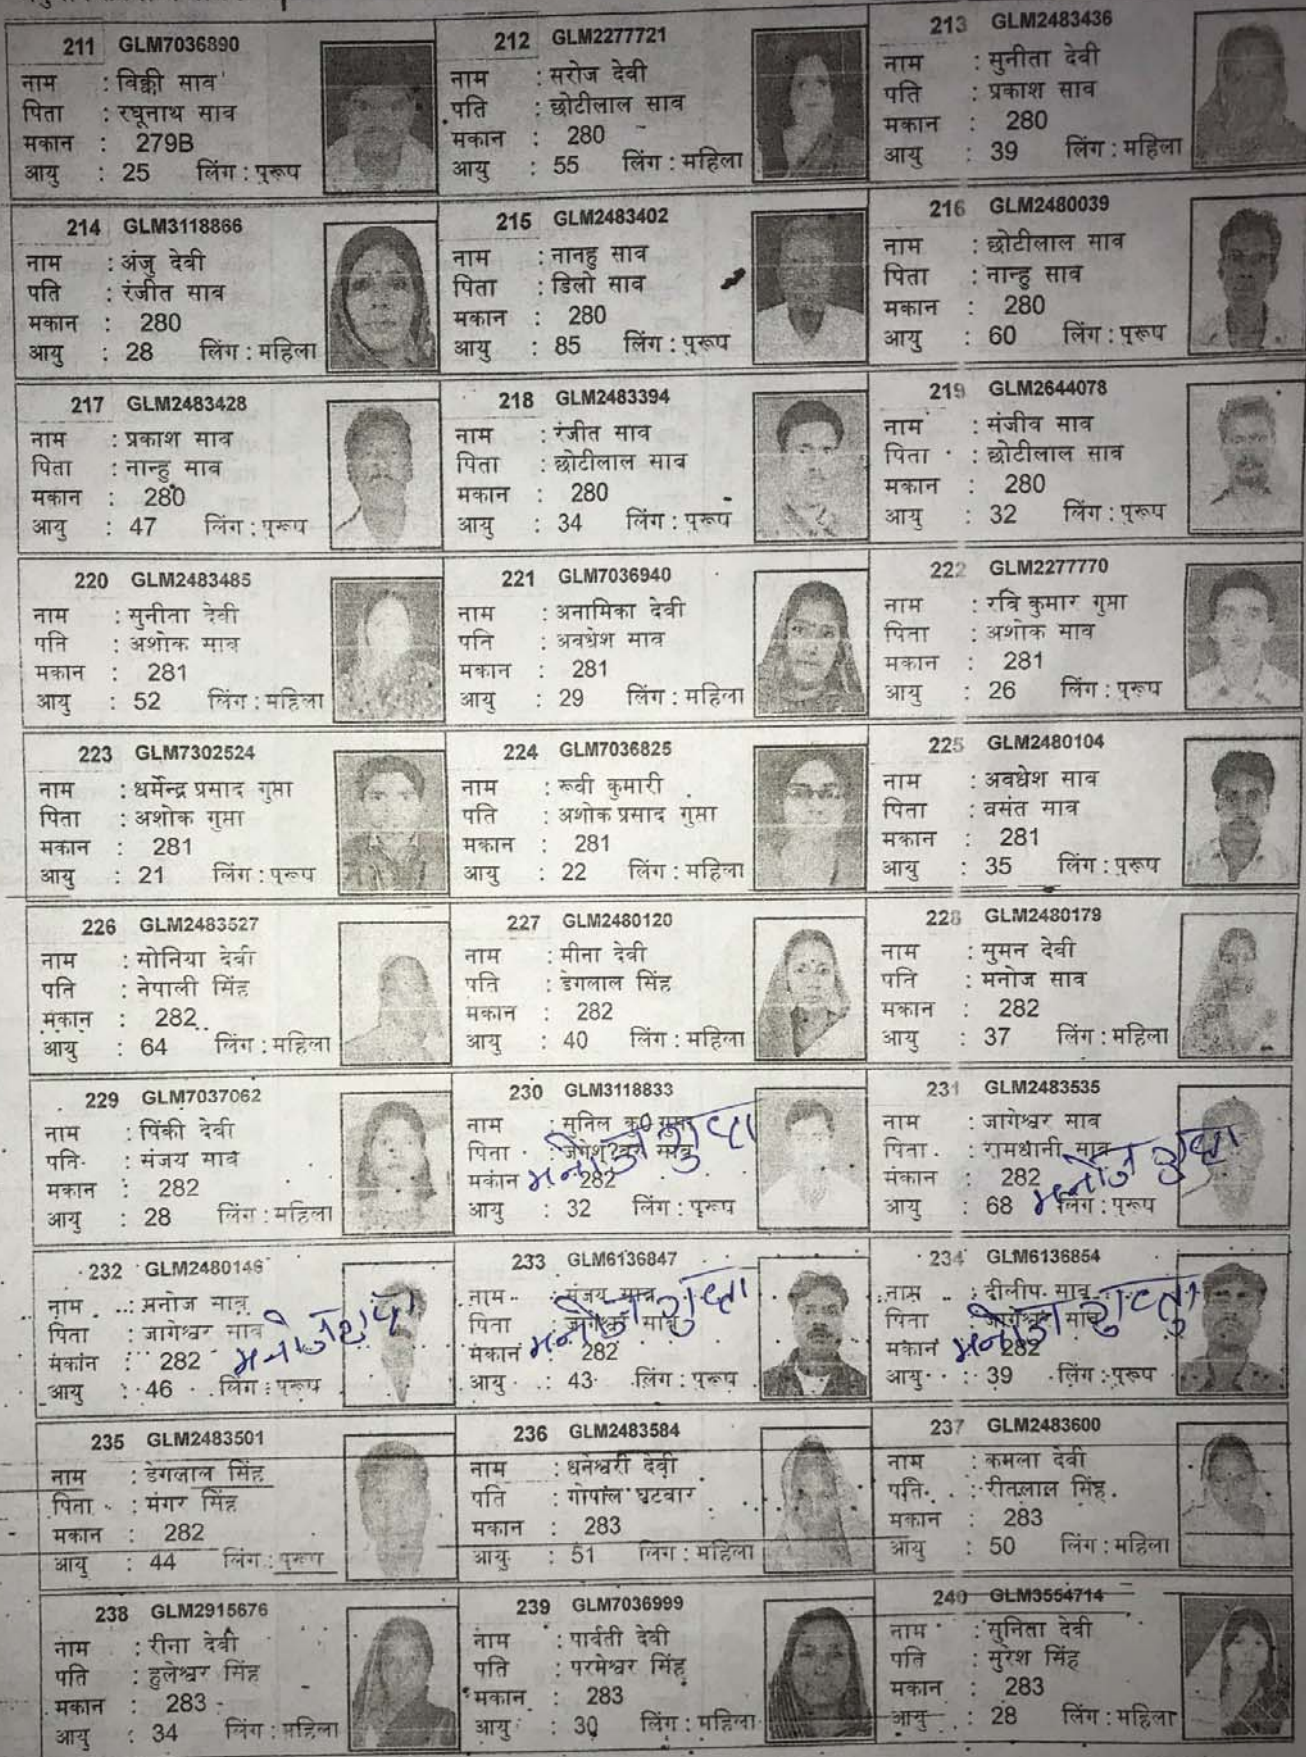 211 GLM7036890
नाम : विक्की साव
पिता : रघूनाथ साव
मकान : 279B
आयु : 25 लिंग : पुरूष
212 GLM2277721
नाम : सरोज देवी
पति : छोटीलाल साव
मकान : 280
आयु : 55 लिंग : महिला
213 GLM2483436
नाम : सुनीता देवी
पति : प्रकाश साव
मकान : 280
आयु : 39 लिंग : महिला
214 GLM3118866
नाम : अंजु देवी
पति : रंजीत साव
मकान : 280
आयु : 28 लिंग : महिला
215 GLM2483402
नाम : नानहु साव
पिता : डिलो साव
मकान : 280
आयु : 85 लिंग : पुरूष
216 GLM2480039
नाम : छोटीलाल साव
पिता : नान्हु साव
मकान : 280
आयु : 60 लिंग : पुरूष
217 GLM2483428
नाम : प्रकाश साव
पिता : नान्हु साव
मकान : 280
आयु : 47 लिंग : पुरूष
218 GLM2483394
नाम : रंजीत साव
पिता : छोटीलाल साव
मकान : 280
आयु : 34 लिंग : पुरूष
219 GLM2644078
नाम : संजीव साव
पिता : छोटीलाल साव
मकान : 280
आयु : 32 लिंग : पुरूष
220 GLM2483485
नाम : सुनीता देवी
पति : अशोक साव
मकान : 281
आयु : 52 लिंग : महिला
221 GLM7036940
नाम : अनामिका देवी
पति : अवधेश साव
मकान : 281
आयु : 29 लिंग : महिला
222 GLM2277770
नाम : रवि कुमार गुप्ता
पिता : अशोक साव
मकान : 281
आयु : 26 लिंग : पुरूष
223 GLM7302524
नाम : धर्मेन्द्र प्रसाद गुप्ता
पिता : अशोक गुप्ता
मकान : 281
आयु : 21 लिंग : पुरूष
224 GLM7036825
नाम : रूवी कुमारी
पति : अशोक प्रसाद गुप्ता
मकान : 281
आयु : 22 लिंग : महिला
225 GLM2480104
नाम : अवधेश साव
पिता : वसंत साव
मकान : 281
आयु : 35 लिंग : पुरूष
226 GLM2483527
नाम : सोनिया देवी
पति : नेपाली सिंह
मकान : 282
आयु : 64 लिंग : महिला
227 GLM2480120
नाम : मीना देवी
पति : डेगलाल सिंह
मकान : 282
आयु : 40 लिंग : महिला
228 GLM2480179
नाम : सुमन देवी
पति : मनोज साव
मकान : 282
आयु : 37 लिंग : महिला
229 GLM7037062
नाम : पिंकी देवी
पति : संजय साव
मकान : 282
आयु : 28 लिंग : महिला
230 GLM3118833
नाम : सुनिल कु0
पिता :
मकान : 282
आयु : 32 लिंग : पुरूष
मनोज गुप्ता
231 GLM2483535
नाम : जागेश्वर साव
पिता : रामधानी साव
मकान : 282
आयु : 68 लिंग : पुरूष
मनोज गुप्ता
232 GLM2480146
नाम : मनोज साव
पिता : जागेश्वर साव
मकान : 282
आयु : 46 लिंग : पुरूष
मनोज गुप्ता
233 GLM6136847
नाम : संजय साव
पिता : जागेश्वर साव
मकान : 282
आयु : 43 लिंग : पुरूष
मनोज गुप्ता
234 GLM6136854
नाम : दीलीप साव
पिता : जागेश्वर साव
मकान : 282
आयु : 39 लिंग : पुरूष
मनोज गुप्ता
235 GLM2483501
नाम : डेगलाल सिंह
पिता : मंगर सिंह
मकान : 282
आयु : 44 लिंग : पुरूष
236 GLM2483584
नाम : धनेश्वरी देवी
पति : गोपाल घटवार
मकान : 283
आयु : 51 लिंग : महिला
237 GLM2483600
नाम : कमला देवी
पति : रीतलाल सिंह
मकान : 283
आयु : 50 लिंग : महिला
238 GLM2915676
नाम : रीना देवी
पति : हुलेश्वर सिंह
मकान : 283
आयु : 34 लिंग : महिला
239 GLM7036999
नाम : पार्वती देवी
पति : परमेश्वर सिंह
मकान : 283
आयु : 30 लिंग : महिला
240 GLM3554714
नाम : सुनिता देवी
पति : सुरेश सिंह
मकान : 283
आयु : 28 लिंग : महिला